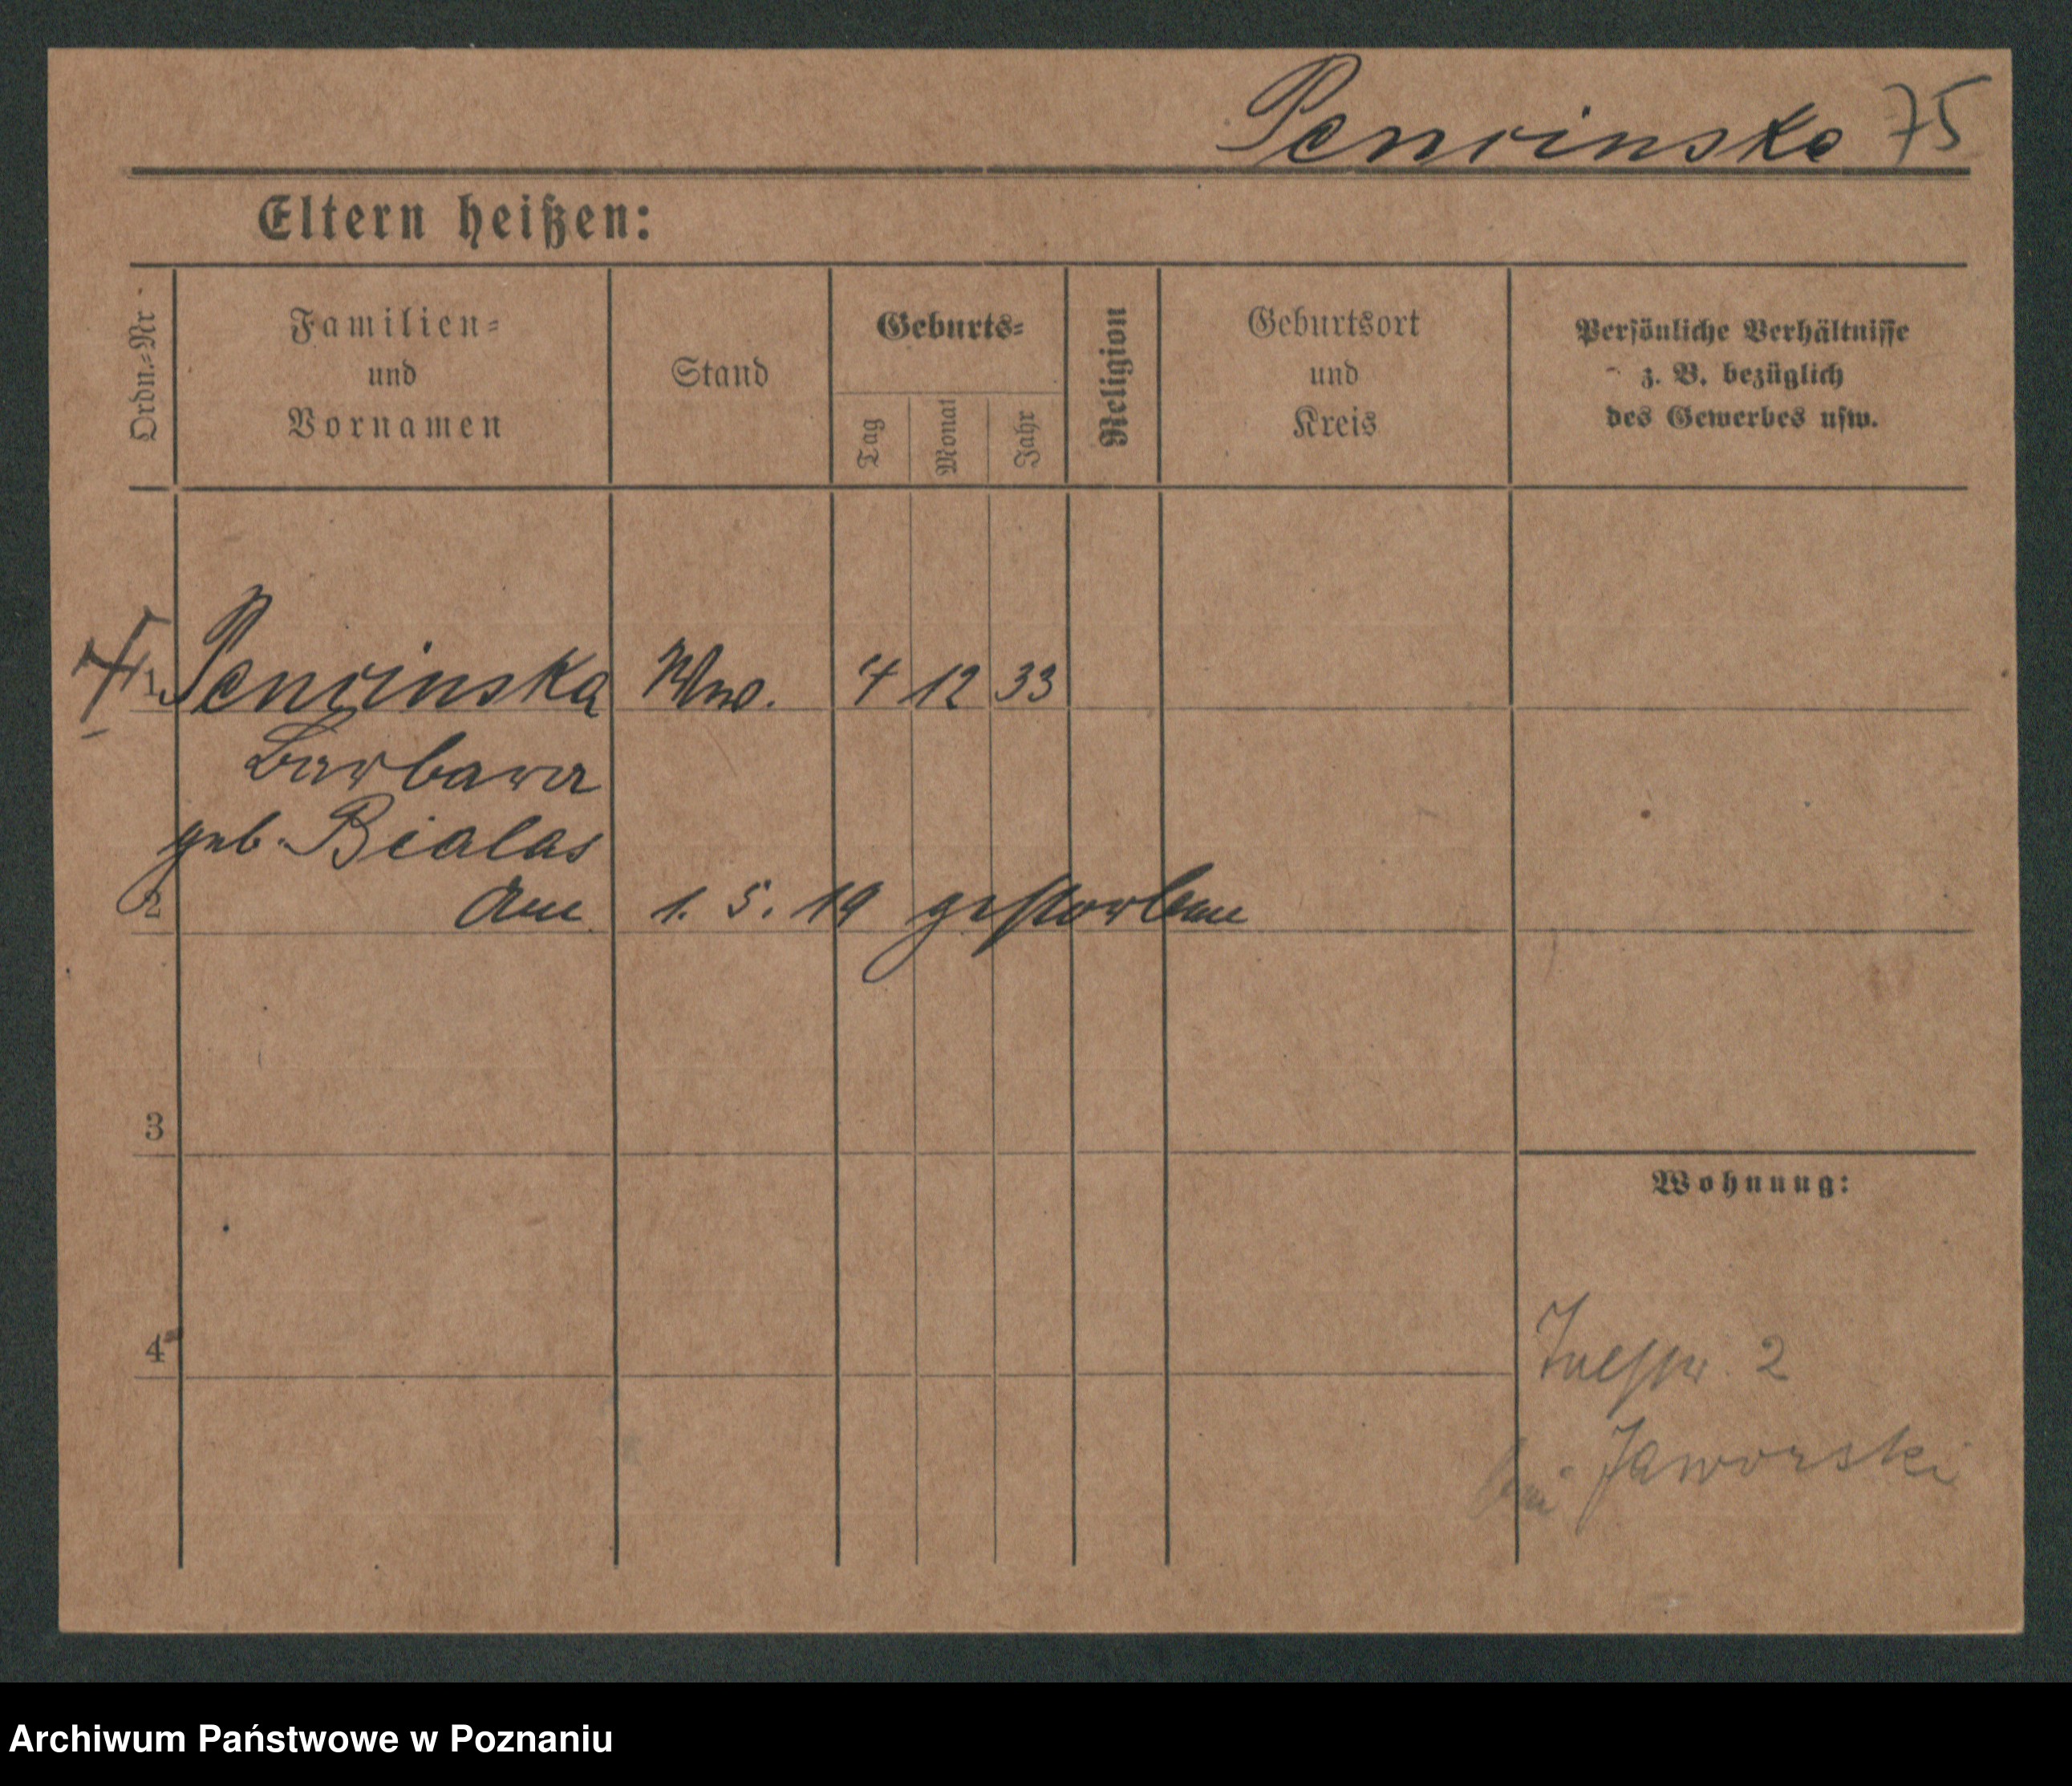 Pencinska 75
Eltern heißen:
Ordn.=Nr.
Familien=
und
Vornamen
Stand
Geburts=
Tag
Monat
Jahr
Religion
Geburtsort
und
Kreis
Persönliche Verhältnisse
z. B. bezüglich
des Gewerbes usw.
1 Pencinska Ww. 4 12 33
Barbara
geb. Bialas
2 Am 1. 5. 19 gestorben
3
Wohnung:
4
2
bei Jaworski
Archiwum Państwowe w Poznaniu